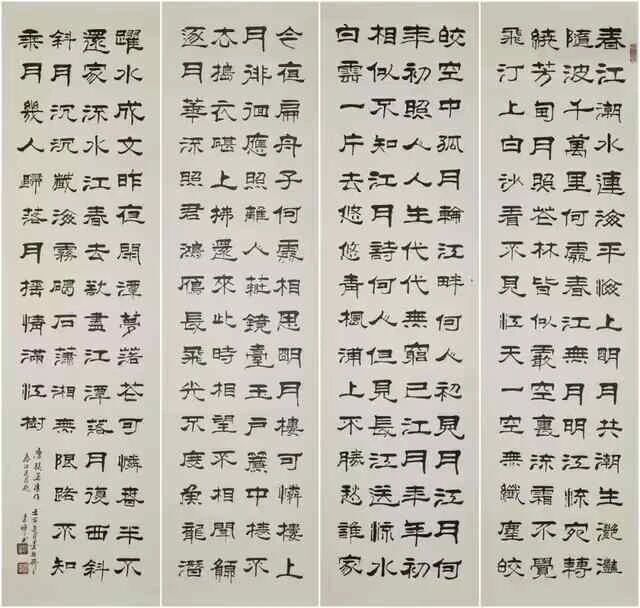 春江潮水連海平海上明月共潮生灩灩
隨波千萬里何處春江無月明江流宛轉
繞芳甸月照花林皆似霰空裏流霜不覺
飛汀上白沙看不見江天一空無纖塵皎
皎空中孤月輪江畔何人初見月江月何
年初照人人生代代無窮已江月年年初
相似不知江月詩何人但見長江送流水
白雲一片去悠悠青楓浦上不勝愁誰家
今夜扁舟子何處相思明月樓可憐樓上
月徘徊應照離人粧鏡臺玉戶簾中捲不
去擣衣砧上拂還來此時相望不相聞願
逐月華流照君鴻雁長飛光不度魚龍潛
躍水成文昨夜閑潭夢落花可憐春半不
還家流水江春去欲盡江潭落月復西斜
斜月沉沉藏海霧碣石瀟湘無限路不知
乘月幾人歸落月搖情滿江樹
唐張若虛作
春江花月夜